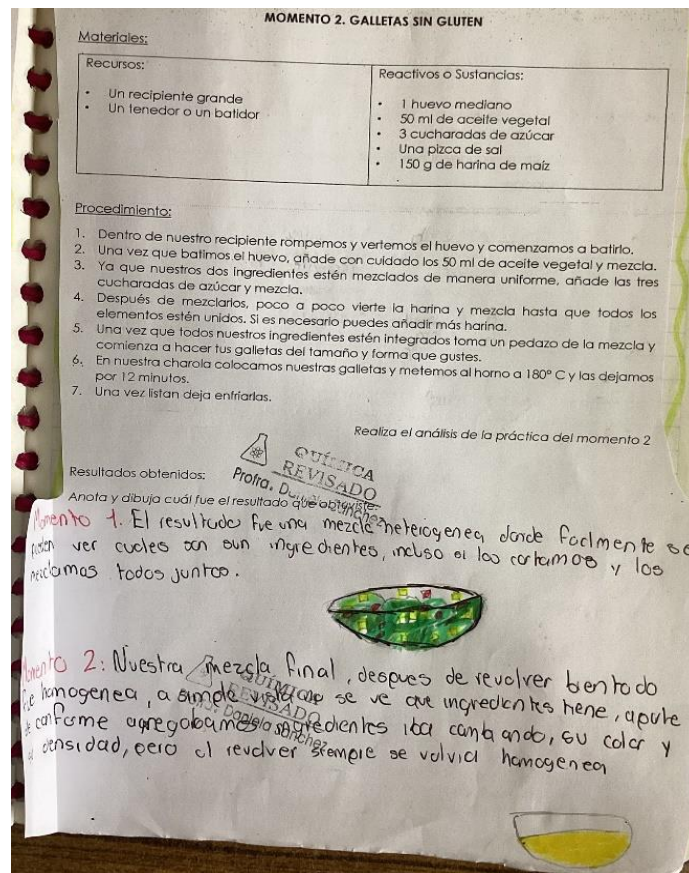 MOMENTO 2. GALLETAS SIN GLUTEN
Materiales:
Recursos:
• Un recipiente grande
• Un tenedor o un batidor
Reactivos o Sustancias:
• 1 huevo mediano
• 50 ml de aceite vegetal
• 3 cucharadas de azúcar
• Una pizca de sal
• 150 g de harina de maíz
Procedimiento:
1. Dentro de nuestro recipiente rompemos y vertemos el huevo y comenzamos a batirlo.
2. Una vez que batimos el huevo, añade con cuidado los 50 ml de aceite vegetal y mezcla.
3. Ya que nuestros dos ingredientes estén mezclados de manera uniforme, añade las tres
cucharadas de azúcar y mezcla.
4. Después de mezclarlos, poco a poco vierte la harina y mezcla hasta que todos los
elementos estén unidos. Si es necesario puedes añadir más harina.
5. Una vez que todos nuestros ingredientes estén integrados toma un pedazo de la mezcla y
comienza a hacer tus galletas del tamaño y forma que gustes.
6. En nuestra charola colocamos nuestras galletas y metemos al horno a 180° C y las dejamos
por 12 minutos.
7. Una vez listan deja enfriarlas.
Realiza el análisis de la práctica del momento 2
QUÍMICA
REVISADO
Profra.
Resultados obtenidos:
Anota y dibuja cuál fue el resultado que obtuviste.
Momento 1. El resultado fue una mezcla heterogenea, donde facilmente se
pueden ver cuales son sun ingredientes, incluso si los cortamos y los
mezclamos todos juntos.
Momento 2: Nuestra mezcla final, despues de revolver bien todo
fue homogenea, a simple vista no se ve que ingredientes tiene, aparte
de conforme agregabamos ingredientes iba cambiando, su color y
densidad, pero al revolver siempre se volvia homogenea
QUÍMICA
REVISADO
Daniela Sánchez